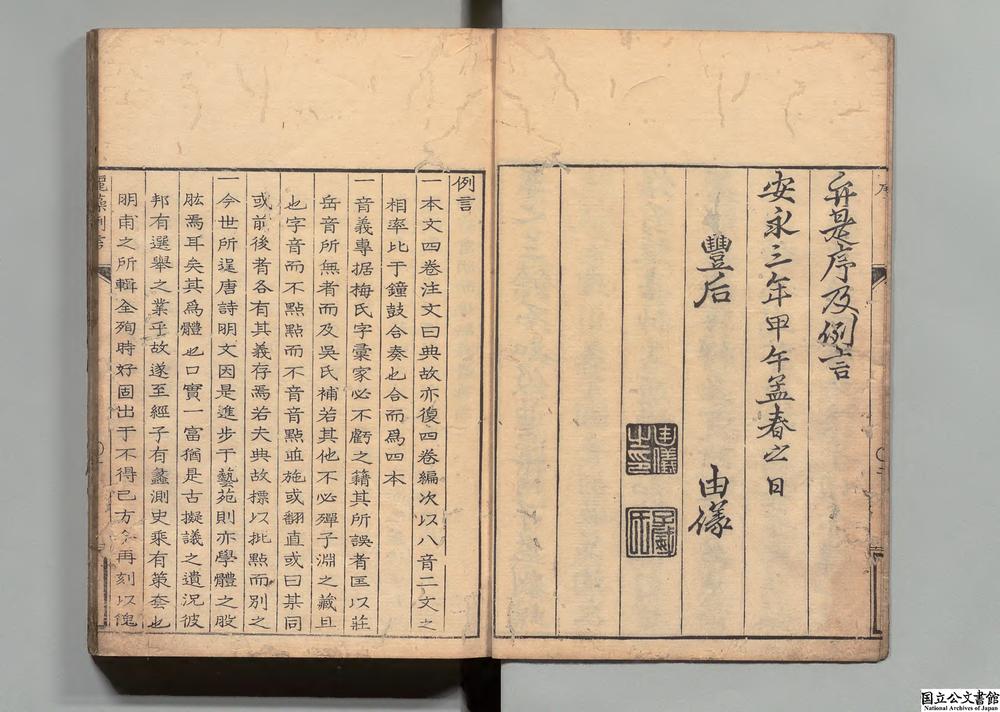 弁是序及例言
安永三年甲午孟春之日
豐后　由儀
由儀之印
例言
一本文四卷注文曰典故亦復四卷編次以八音二文之
相率比于鐘鼓合奏也合而爲四本
一音義專据梅氏字彙家必不虧之籍其所誤者匡以莊
岳音所無者而及吳氏補若其他不必殫子淵之藏且
也字音而不點點而不音音點並施或翻直或曰某同
或前後者各有其義存焉若夫典故標以批點而別之
一今世所逞唐詩明文因是進步于藝苑則亦學體之股
肱焉耳矣其爲體也口實一富猶是古擬議之遺況彼
邦有選舉之業乎故遂至經子有蠡測史乘有策套也
明甫之所輯全殉時好固出于不得已方今再刻以傀
麗藻例言
国立公文書館
National Archives of Japan